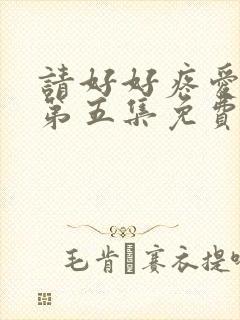 請好好疼愛
第五集免費
毛肯賽衣提